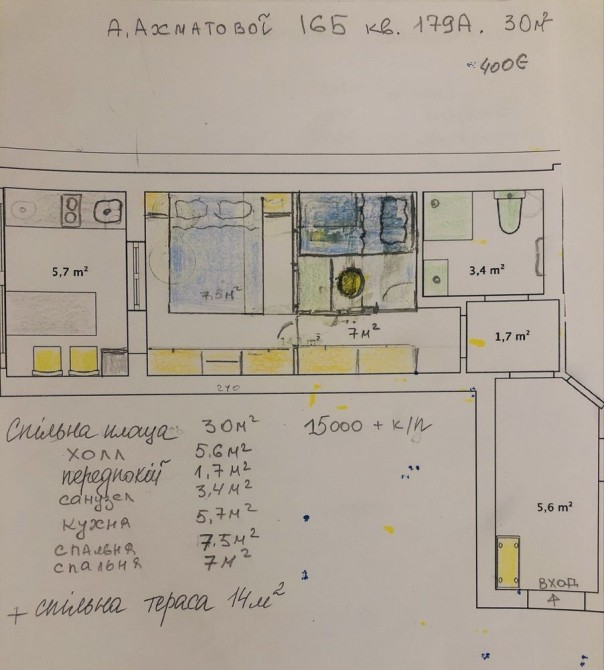 А.АХМАТОВОЇ 16Б кв. 179А. 30м²
~400€
5,7 m²
7,5м²
3,4 m²
7м²
1,7 m²
240
5,6 m²
ВХОД
Спільна площа 30м² 15000 + к/п
ХОЛЛ 5.6м²
передпокій 1,7м²
санузел 3,4м²
КУХНА 5,7м²
СПАЛЬНЯ 7.5м²
спальня 7м²
+ спільна тераса 14м²